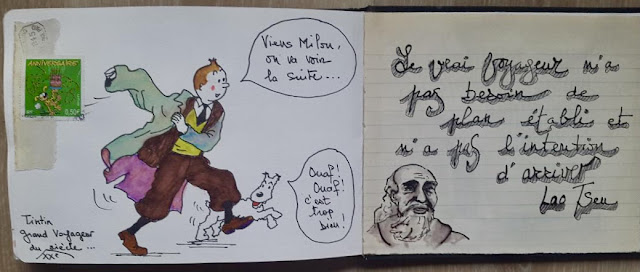 ANNIVERSAIRE
Viens Milou,
on va voir
la suite...
Ouaf!
Ouaf!
c'est
trop
bien!
Tintin
grand voyageur
du siècle...
XXe
Le vrai voyageur n'a
pas besoin de
plan établi et
n'a pas l'intention
d'arriver
Lao Tseu